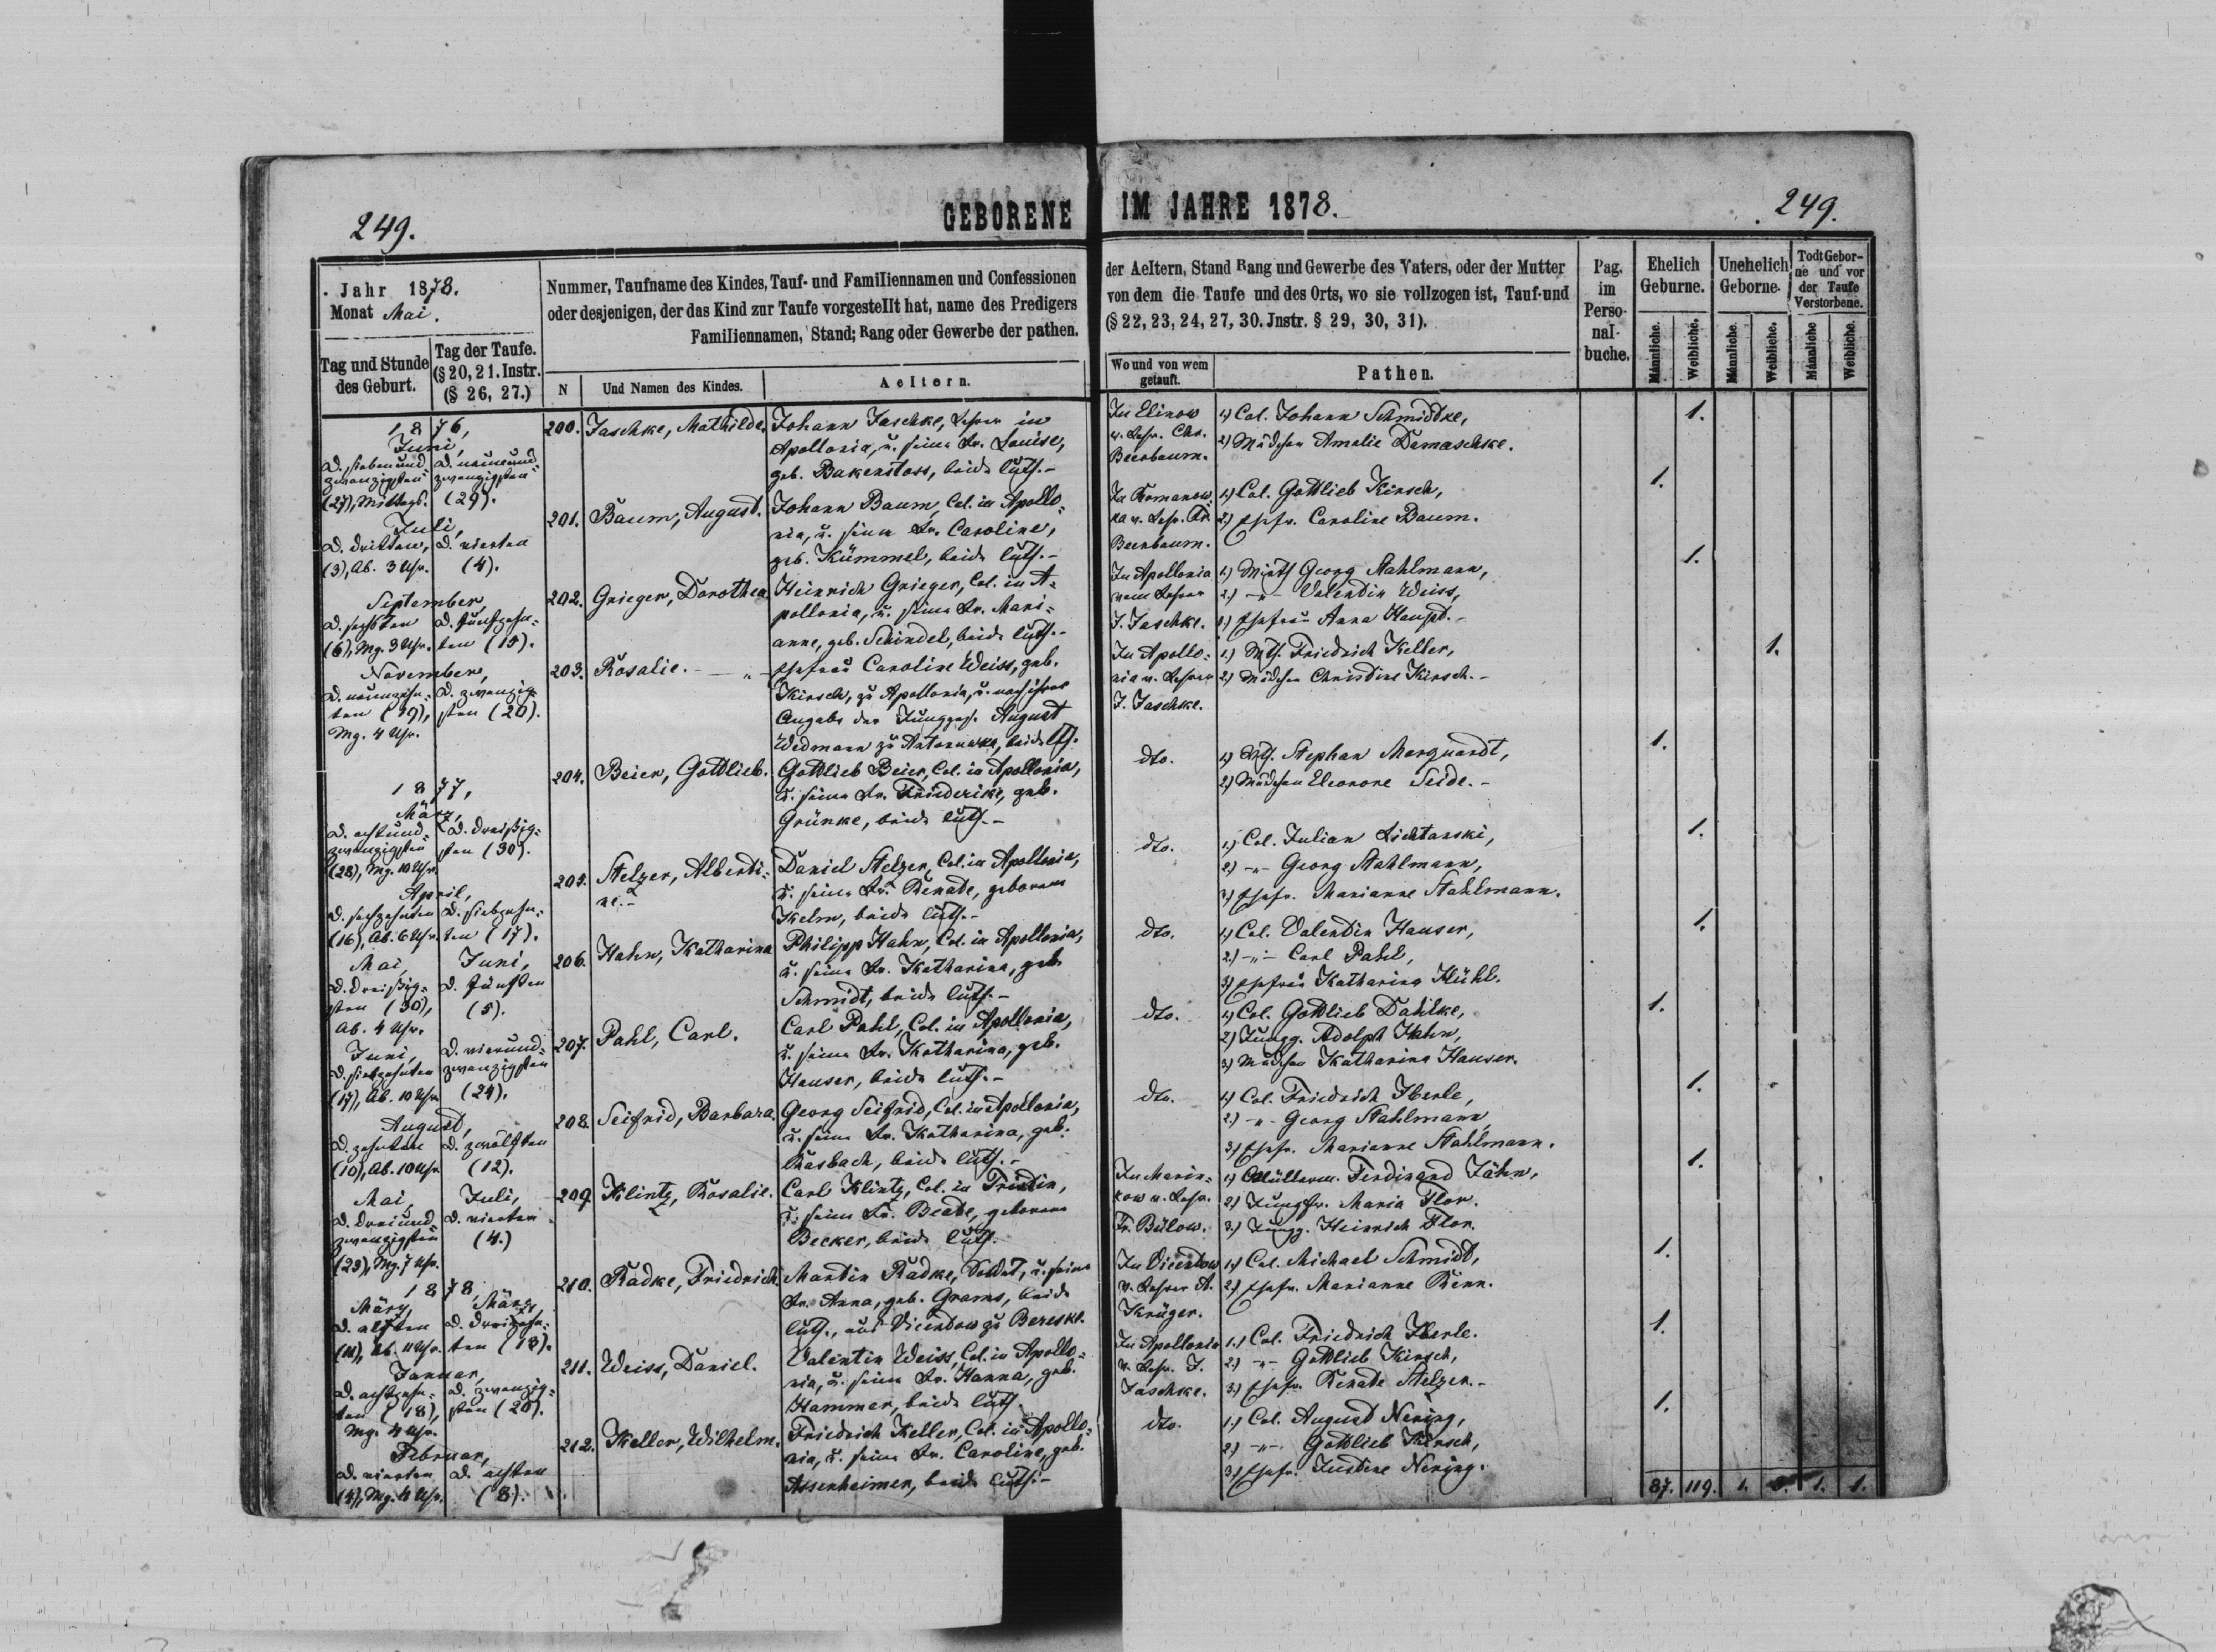 249.
GEBORENE IM JAHRE 1878.
249.
Jahr 1878.
Monat Mai.
Tag und Stunde des Geburt.
Tag der Taufe.
(§ 20, 21. Instr.
(§ 26, 27.)
Nummer, Taufname des Kindes, Tauf- und Familiennamen und Confessionen
oder desjenigen, der das Kind zur Taufe vorgestellt hat, name des Predigers
Familiennamen, Stand; Rang oder Gewerbe der pathen.
N
Und Namen des Kindes.
Aeltern.
der Aeltern, Stand Rang und Gewerbe des Vaters, oder der Mutter
von dem die Taufe und des Orts, wo sie vollzogen ist, Tauf-und
(§ 22, 23, 24, 27, 30. Jnstr. § 29, 30, 31).
Wo und von wem
getauft.
Pathen.
Pag.
im
Perso-
nal-
buche.
Ehelich
Geburne.
Unehelich
Geborne.
Todt Gebor-
ne und vor
der Taufe
Verstorbene.
Männliche.
Weibliche.
Männliche.
Weibliche.
Männliche
Weibliche.
1876,
Juni,
D. sieben und
zwanzigsten
(27), Mittags.
D. neunund-
zwanzigsten
(29).
200. Jaschke, Mathilde.
Johann Jaschke, Lehrer in
Apollonia, u. seine Fr. Louise,
geb. Bakenstoss, beide luth.-
In Elinow
v. Lehr. Chr.
Beerbaum.
1.) Col. Johann Schmidtke,
2.) Mädchen Amalie Damaschke.
1.
Juli,
D. dritten,
(3), Ab. 3 Uhr.
D. vierten
(4).
201. Baum, August.
Johann Baum, Col. in Apollo-
nia, u. seine Fr. Caroline,
geb. Kümmel, beide luth.-
In Romanow-
ka v. Lehr. Chr.
Beerbaum.
1.) Col. Gottlieb Kirsch,
2.) Ehefr. Caroline Baum.
1.
September
D. sechsten
(6), Mg. 3 Uhr.
D. fünfzehn-
ten (15).
202. Grieger, Dorothea
Heinrich Grieger, Col. in A-
pollonia, u. seine Fr. Mari-
anne, geb. Schindel, beide luth.-
In Apollonia
vom Lehrer
J. Jaschke.
1.) Mieth Georg Stahlmann,
2.) -„- Valentin Weiss,
1.) Ehefrau Anna Haupt.-
1.
November,
D. neunzehn-
ten (19),
Mg. 4 Uhr.
D. zwanzig-
sten (20).
203. Rosalie. - „ -
Ehefrau Caroline Weiss, geb.
Kirsch, zu Apollonia, u. nach ihrer
Angabe der Junggs. August
Wedmann zu Antonuwka, beide lth.
In Apollo-
nia v. Lehrer
J. Jaschke.
1.) Mth. Friedrich Keller,
2.) Mädchen Christine Kirsch.-
1.
1877,
März,
D. achtund-
zwanzigsten
(28), Mg. 10 Uhr.
D. dreißig-
sten (30).
204. Beier, Gottlieb.
Gottlieb Beier, Col. in Apollonia,
u. seine Fr. Friederike, geb.
Grünke, beide luth.-
dto.
1.) Mth. Stephan Marquardt,
2.) Mädchen Eleonore Seide.-
1.
April,
D. sechzehnten
(16), Ab. 6 Uhr.
D. siebzehn-
ten (17).
205. Stelzer, Alberti-
ne.-
Daniel Stelzer, Col. in Apollonia,
u. seine Fr. Renate, geborene
Kelm, beide luth.-
dto.
1.) Col. Julian Lichtanski,
2.) -„- Georg Stahlmann,
3.) Ehefr. Marianne Stahlmann.
1.
Mai,
D. dreißig-
sten (30),
Ab. 4 Uhr.
Juni,
D. fünften
(5).
206. Hahn, Katharina
Philipp Hahn, Col. in Apollonia,
u. seine Fr. Katharina, geb.
Schmidt, beide luth.-
dto.
1.) Col. Valentin Hauser,
2.) -„- Carl Pahl,
3.) Ehefrau Katharina Kühl.
1.
Juni,
D. siebzehnten
(17), Ab. 10 Uhr
D. vierund-
zwanzigsten
(24).
207. Pahl, Carl.
Carl Pahl, Col. in Apollonia,
u. seine Fr. Katharina, geb.
Hauser, beide luth.-
dto.
1.) Col. Gottlieb Dahlke,
2.) Jungg. Adolph Hahn,
3.) Mädchen Katharina Hauser.
1.
August,
D. zehnten
(10), Ab. 10 Uhr
D. zwölften
(12).
208. Seifrid, Barbara.
Georg Seifrid, Col. in Apollonia,
u. seine Fr. Katharina, geb.
Rasbach, beide luth.-
dto.
1.) Col. Friedrich Iberle,
2.) -„- Georg Stahlmann,
3.) Ehefr. Marianne Stahlmann.
1.
Mai,
D. dreiund-
zwanzigsten
(23), Mg. 7 Uhr.
Juli,
D. vierten
(4.)
209. Klintz, Rosalie.
Carl Klintz, Col. in
u. seine Fr. Beate, geborene
Becker, beide luth.
In Marin-
kow v. Lehr.
Fr. Bülow.
1.) Müllerm. Ferdinand Jahn,
2.) Jungfr. Maria Flor.
3.) Jungg. Heinrich Flor.
1.
1878,
März,
D. elften
(11), Ab. 11 Uhr.
März,
D. dreizehn-
ten (13).
210. Radke, Friedrich
Martin Radke, Soldat, u. seine
Fr. Anna, geb. Grams, beide
luth., aus Vicentow zu Bereskt.
In Vicentow
v. Lehrer A.
Krüger.
1.) Col. Michael Schmidt,
2.) Ehefr. Marianne Renn.
1.
Januar,
D. achtzehn-
ten (18),
Mg. 4 Uhr.
D. zwanzig-
sten (20).
211. Weiss, Daniel.
Valentin Weiss, Col. in Apollo-
nia, u. seine Fr. Hanna, geb.
Hammer, beide luth.
In Apollonia
v. Lehr. J.
Jaschke.
1.) Col. Friedrich Iberle.
2.) -„- Gottlieb Kirsch,
3.) Ehefr. Renate Stelzer.-
1.
Februar,
D. vierten
(4), Mg. 4 Uhr.
D. achten
(8).
212. Keller, Wilhelm.
Friedrich Keller, Col. in Apollo-
nia, u. seine Fr. Caroline, geb.
Assenheimer, beide luth.-
dto.
1.) Col. August Nering,
2.) -„- Gottlieb Kirsch,
3.) Ehefr. Justine Nering.
1.
87. 119. 1. 1. 1.